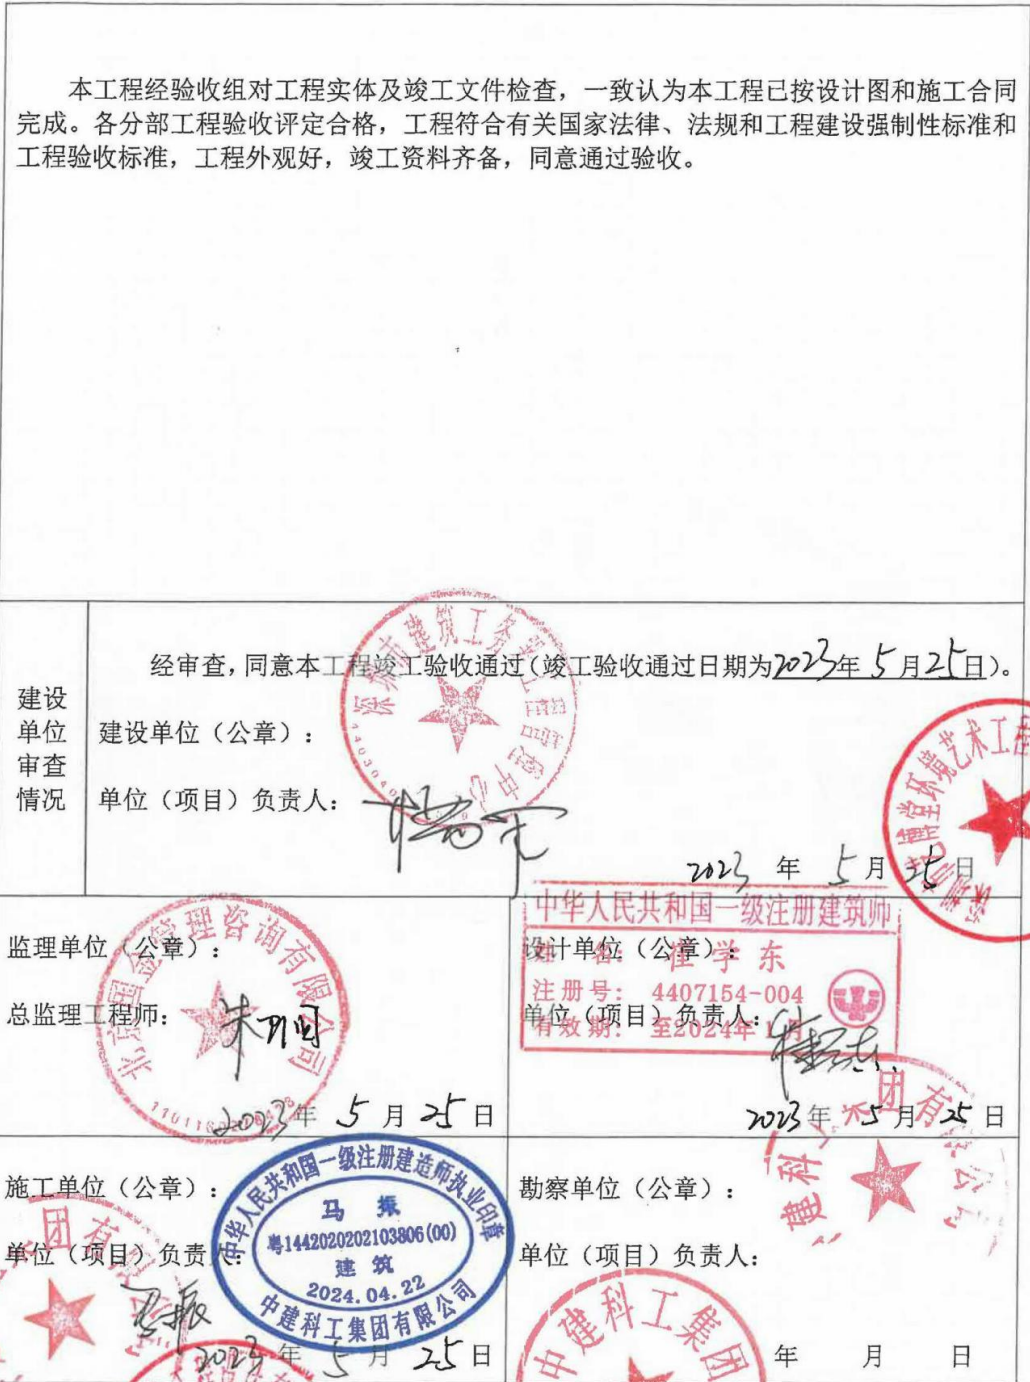 本工程经验收组对工程实体及竣工文件检查，一致认为本工程已按设计图和施工合同
完成。各分部工程验收评定合格，工程符合有关国家法律、法规和工程建设强制性标准和
工程验收标准，工程外观好，竣工资料齐备，同意通过验收。
建设
单位
审查
情况
经审查，同意本工程竣工验收通过（竣工验收通过日期为2023年5月25日）。
建设单位（公章）：
单位（项目）负责人：
2023 年 5 月 25 日
深圳市建筑工务署工程管理中心
环境艺术工程
监理单位（公章）：
总监理工程师：
2023年 5 月 25 日
北京国金管理咨询有限公司
中华人民共和国一级注册建筑师
设计单位（公章）：
姓 名：崔学东
注册号：4407154-004
单位（项目）负责人：
有效期：至2024年1月
2023年 5月 25日
施工单位（公章）：
单位（项目）负责人：
马振
2023年 5月 25日
中华人民共和国一级注册建造师执业印章
马 振
粤1442020202103806(00)
建 筑
2024.04.22
中建科工集团有限公司
团有限公司
勘察单位（公章）：
单位（项目）负责人：
年 月 日
建科工集团有限公司
中建科工集团